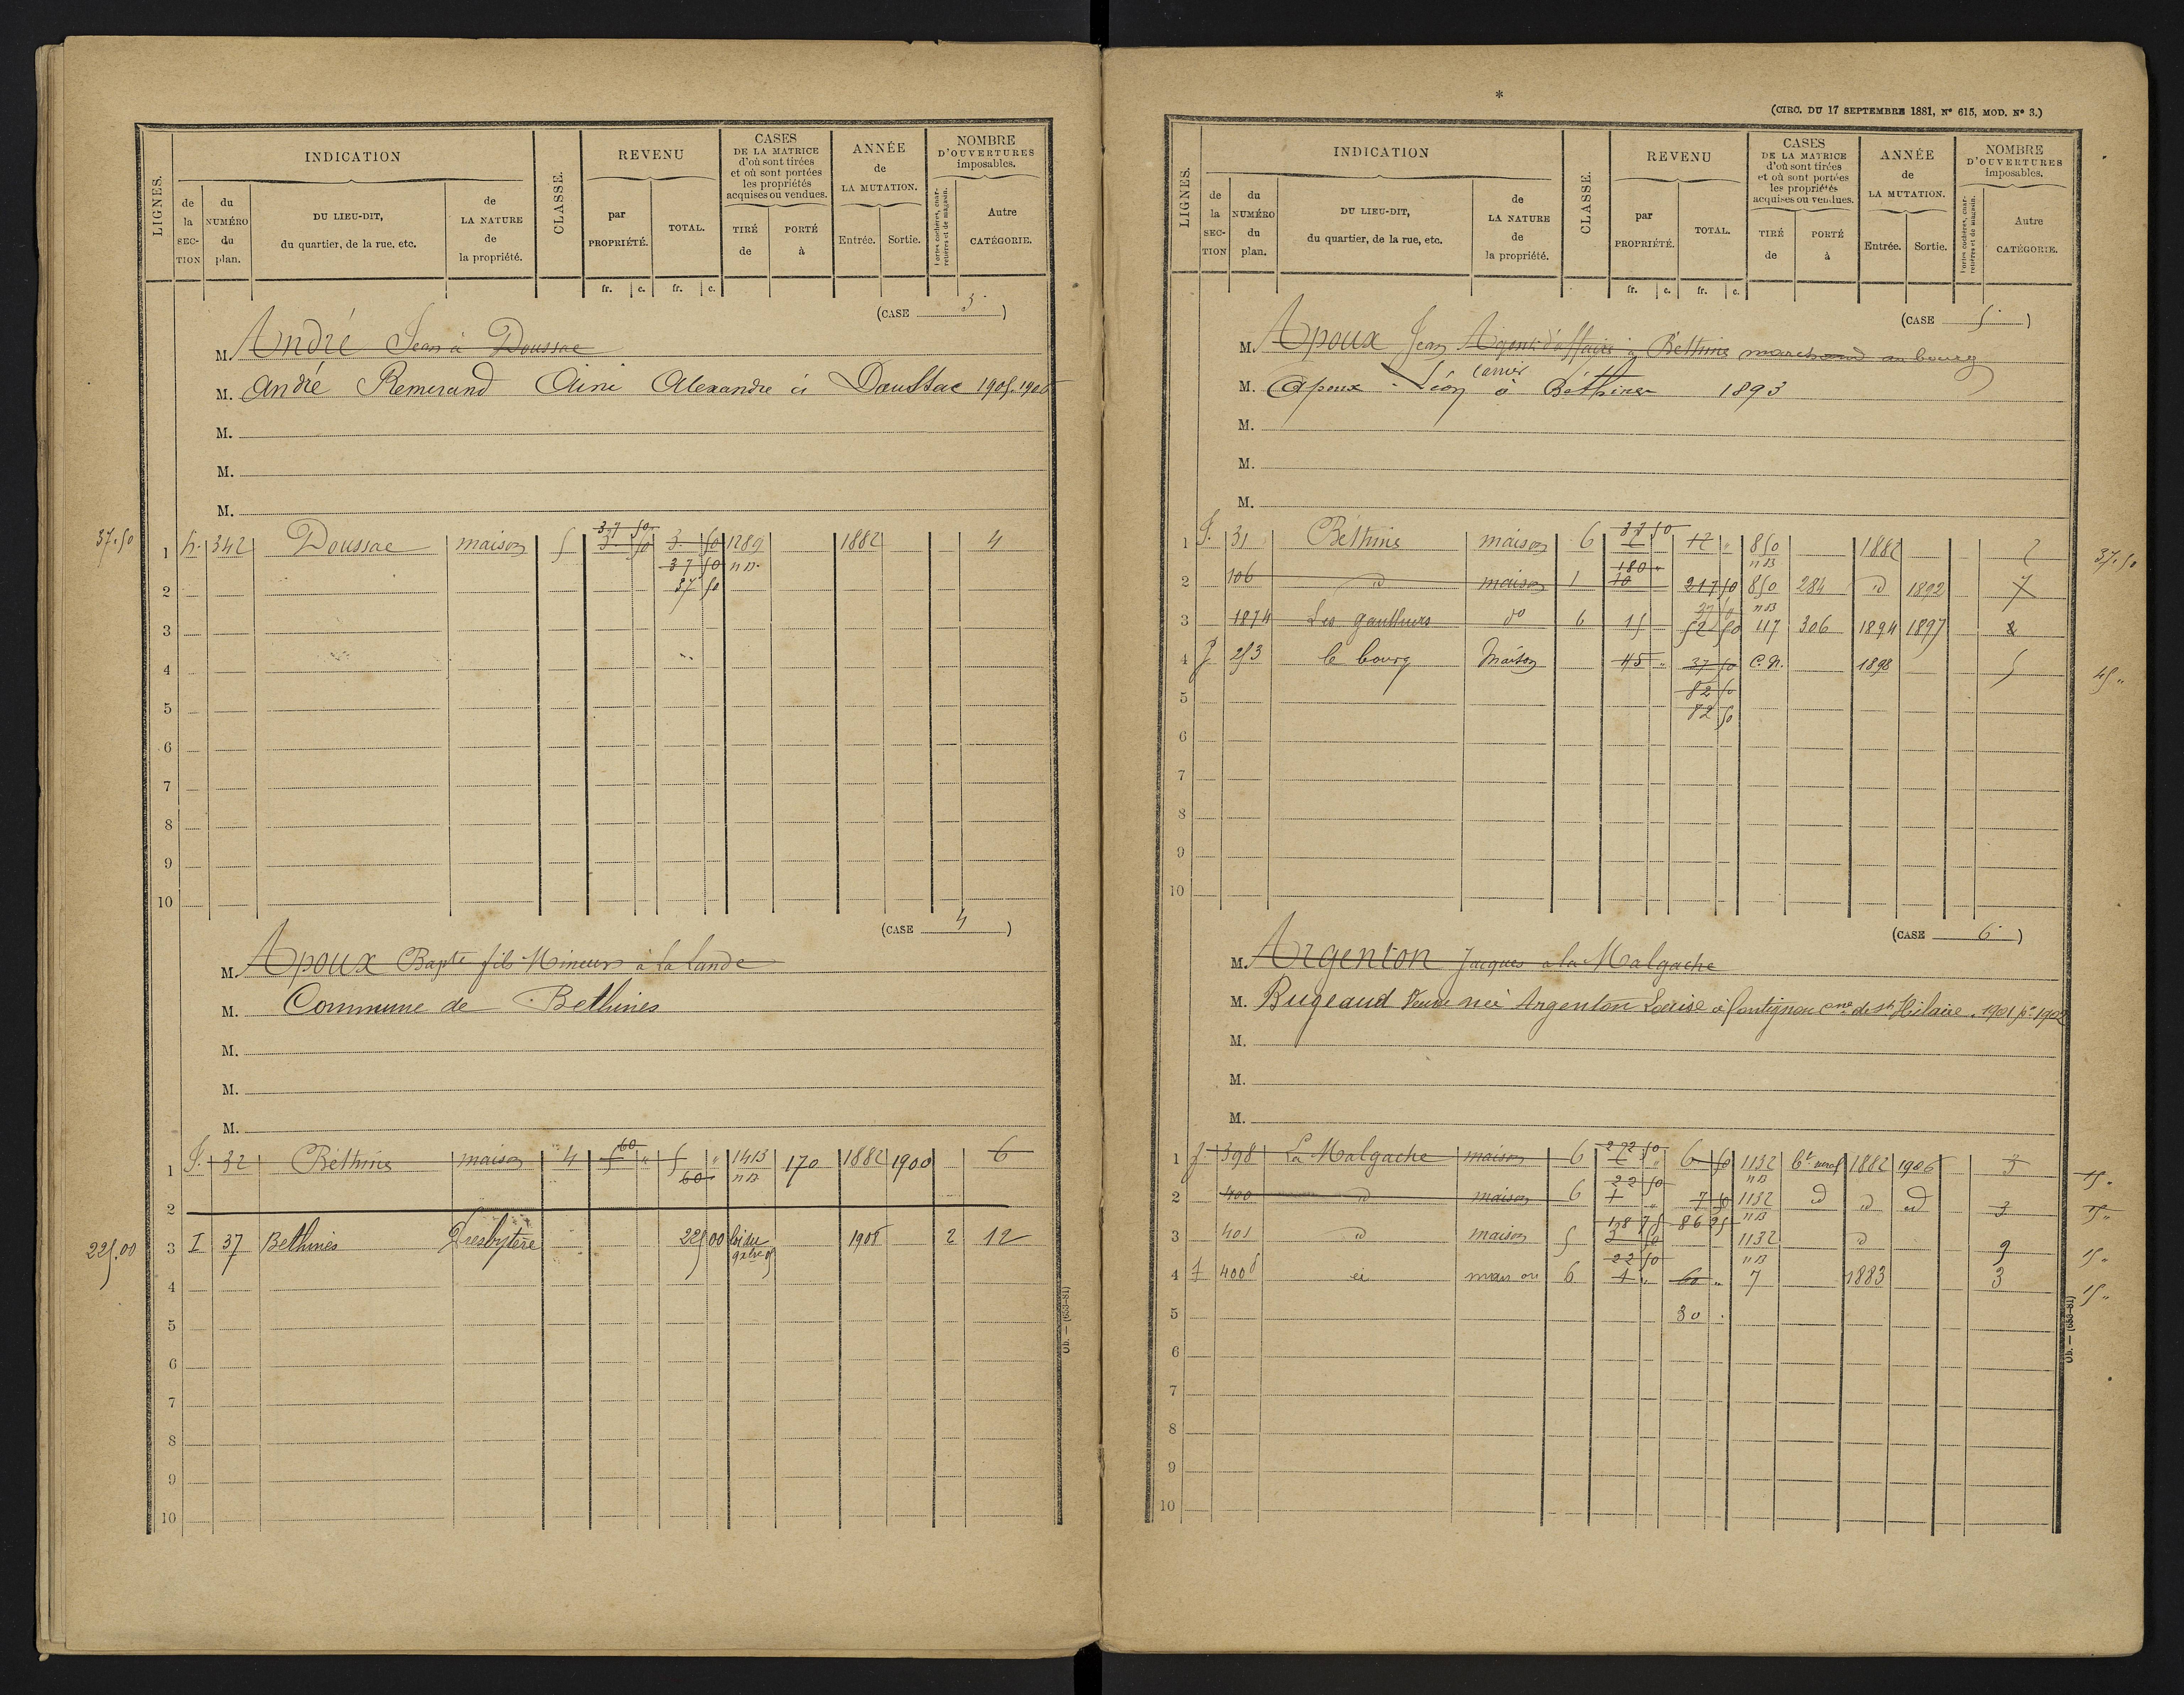 LIGNES.
INDICATION
de la SECTION
du NUMÉRO du plan.
DU LIEU-DIT, du quartier, de la rue, etc.
de LA NATURE de la propriété.
CLASSE.
REVENU
par PROPRIÉTÉ.
TOTAL.
fr. c. fr. c.
CASES DE LA MATRICE d'où sont tirées et où sont portées les propriétés acquises ou vendues.
TIRÉ de
PORTÉ à
ANNÉE de LA MUTATION.
Entrée. Sortie.
NOMBRE D'OUVERTURES imposables.
Portes cochères, charretières et de magasin.
Autre CATÉGORIE.
(CASE 3)
M. André Jean à Doussac
M. André Remerand Aimé Alexandre à Doussac 1905.1906
M.
M.
M.
37.50
37 50
1 h. 342 Doussac maison 5 3. 50 3. 50 1289 1882 4
37 50 n B.
2 37 50
3
4
5
6
7
8
9
10
(CASE 4)
M. Apoux Bapte fils Mineur à La lande
M. Commune de Bethines
M.
M.
M.
60
1 32 Béthines maison 4 5 " 5 " 1413 170 1882 1900 6
60 n B
2
225.00
3 I 37 Bethines Presbytère 225 00 2 12
4
5
6
7
8
9
10
Ob. — (653-81)
*
(CIRC. DU 17 SEPTEMBRE 1881, N° 615, MOD. N° 3.)
LIGNES.
INDICATION
de la SECTION
du NUMÉRO du plan.
DU LIEU-DIT, du quartier, de la rue, etc.
de LA NATURE de la propriété.
CLASSE.
REVENU
par PROPRIÉTÉ.
TOTAL.
fr. c. fr. c.
CASES DE LA MATRICE d'où sont tirées et où sont portées les propriétés acquises ou vendues.
TIRÉ de
PORTÉ à
ANNÉE de LA MUTATION.
Entrée. Sortie.
NOMBRE D'OUVERTURES imposables.
Portes cochères, charretières et de magasin.
Autre CATÉGORIE.
(CASE 5)
M. Apoux Jean Agent d'affaires à Béthines marchand au bourg
M. Apoux Léon à Béthines 1893
M.
M.
M.
37 50
1 31 Béthines maison 6 12 " 850 1882 2 37.50
180 " n B
2 106 d maison 1 10 217 50 850 284 d 1892 7
37 50 n B
3 1874 Les gauthiers do 6 15 52 50 117 306 1894 1897 2
4 253 le bourg Maison 45 " 37 50 C.N. 1898 5 45 "
5 82 50
82 50
6
7
8
9
10
(CASE 6)
M. Argenton Jacques à la Malgache
M. Bugeaud Veuve née Argenton Louise à cne de St Hilaire. 1901 pr 1902
M.
M.
M.
1 398 La Malgache maison 6 6 50 1132 1882 1906 3 15.
22 50 n B
2 400 d maison 6 1 " 7 50 1132 d d d 3 15 "
18 75 86 25 n B
3 401 d maison 5 3 50 1132 d 9 15 "
22 50 n B
4 400 6 1 " 60 " 7 1883 3 15 "
5 30
6
7
8
9
10
Ob. — (653-81)